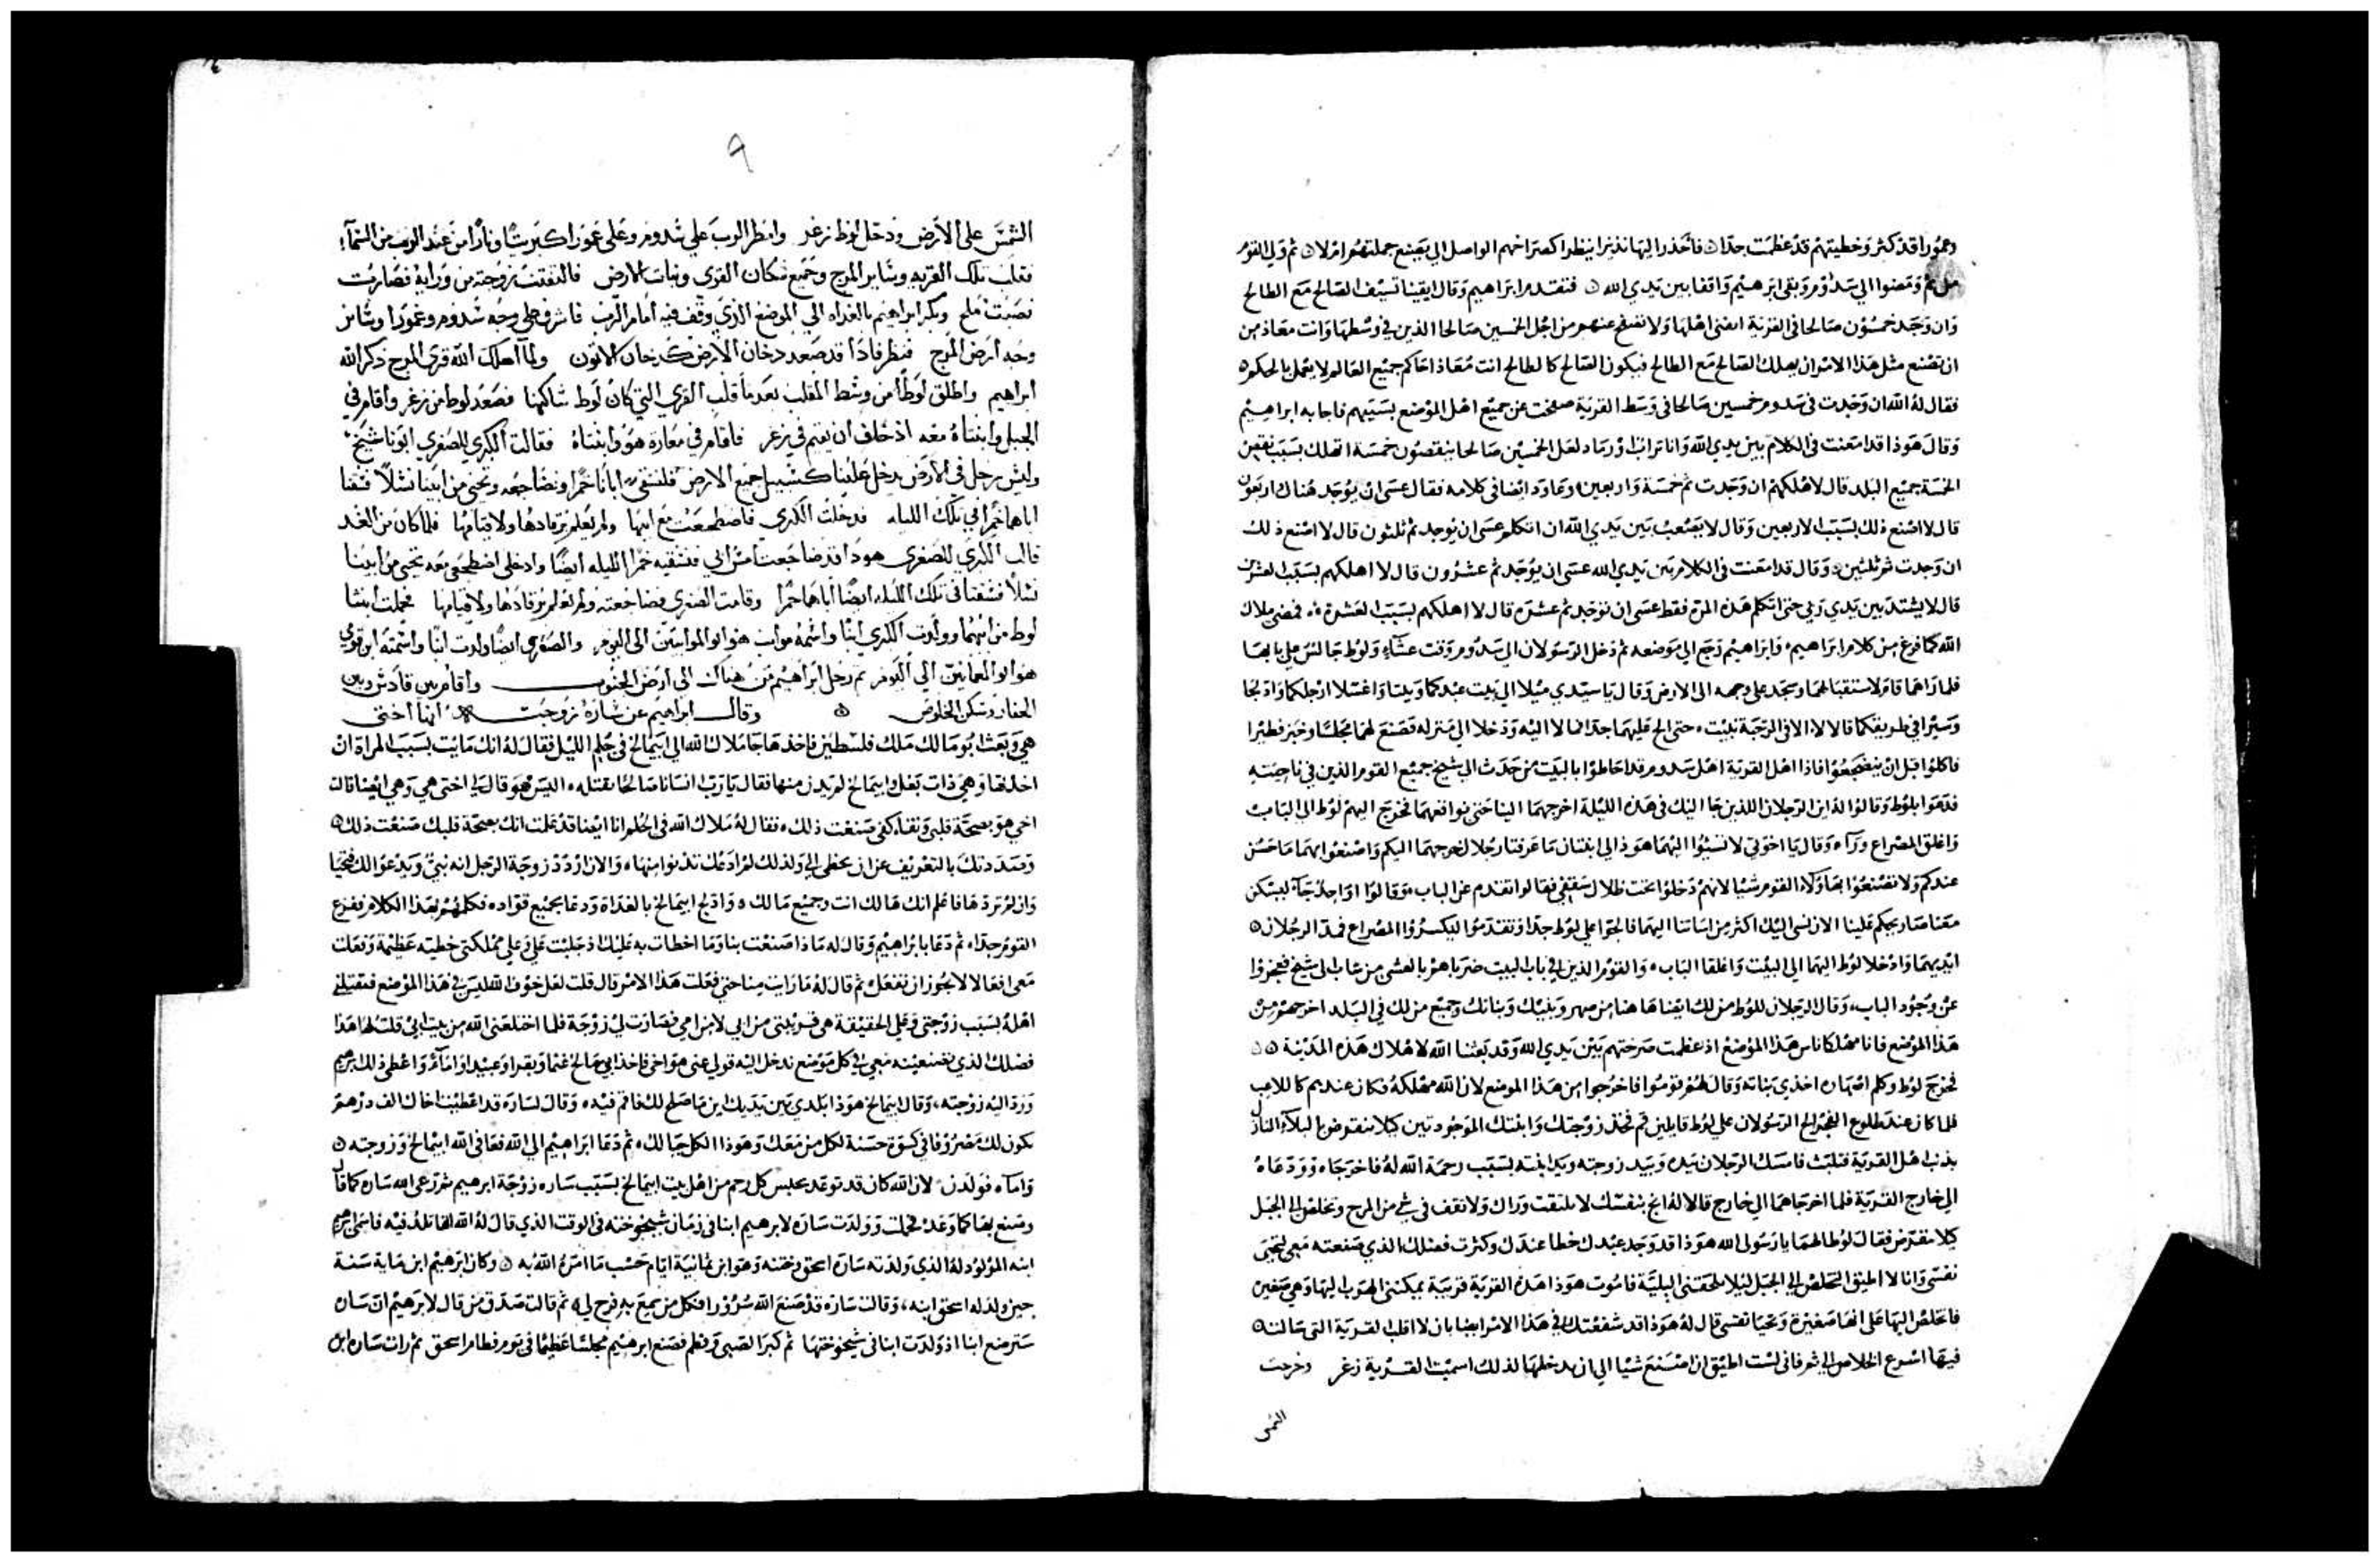 وعمورا قد كثر وخطيتهم قد عظمت جدا فانحدر اليها نذيرا ينظر اكصراخهم الواصل الي يصنع جملتهم ام لا ثم ولي القوم
من ثم ومضوا الي سدوم وبقى ابرهيم واقفا بين يدي الله فتقدم ابراهيم وقال ايقينا تسيف الصالح مع الطالح
وان وجد خمسون صالحا في القرية اتفنى اهلها ولا تصفح عنهم من اجل الخمسين صالحا الذين في وسطها وانت معاذ من
ان تصنع مثل هذا الامر ان يهلك الصالح مع الطالح فيكون الصالح كالطالح انت معاذ احاكم جميع العالم لا يعمل بالحكم
فقال له الله ان وجدت في سدوم خمسين صالحا في وسط القرية صفحت عن جميع اهل الموضع بسببهم فاجابه ابراهيم
وقال هوذا قد امعنت في الكلام بين يدي الله وانا تراب ورماد لعل الخمسين صالحا ينقصون خمسة اتهلك بسبب نقص
الخمسة جميع البلد قال لا اهلكهم ان وجدت ثم خمسة واربعين وعاود ايضا في كلامه فقال عسى ان يوجد هناك اربعون
قال لا اصنع ذلك بسبب الاربعين وقال لا يصعب بين يدي الله ان اتكلم عسى ان يوجد ثم ثلثون قال لا اصنع ذلك
ان وجدت ثم ثلثين وقال قد امعنت في الكلام بين يدي الله عسى ان يوجد ثم عشرون قال لا اهلكهم بسبب العشرين
قال لا يشتد بين يدي ربي حتى اتكلم هذه المرة فقط عسى ان توجد ثم عشره قال لا اهلكهم بسبب العشرة فمضى ملاك
الله كما فرغ من كلام ابراهيم وابراهيم رجع الي موضعه ثم دخل الرسولان الي سدوم وقت عشاء ولوط جالس على بابها
فلما راهما قام لاستقبالهما وسجد على وجهه الى الارض وقال يا سيدي ميلا الي بيت عبدكما وبيتا واغسلا ارجلكما وادلجا
وسيرا في طريقكما قالا لا الا في الرحبة نبيت حتى الح عليهما جدا فمالا اليه ودخلا الي منزله فصنع لهما مجلسا وخبز فطيرا
فاكلوا قبل ان ينضجعوا فاذا اهل القرية اهل سدوم قد احاطوا بالبيت من حدث الي شيخ جميع القوم الذين في ناحيته
فدعوا بلوط وقالوا له اين الرجلان اللذين جا اليك في هذه الليلة اخرجهما الينا حتى نواقعهما فخرج اليهم لوط الي الباب
واغلق المصراع وراه وقال يا اخوتي لا تسيوا اليهما هوذا لي ابنتان ما عرفتا رجلا اخرجهما اليكم واصنعوا بهما ما حسن
عندكم ولا تصنعوا بهاولاء القوم شيا لانهم دخلوا تحت ظلال سقفي فقالوا تقدم عن الباب وقالوا اواحد جاء ليسكن
معنا صار يحكم علينا الان نسي اليك اكثر من اساتنا اليهما فالحوا على لوط جدا وتقدموا ليكسروا المصراع فمد الرجلان
ايديهما وادخلا لوط اليهما الي البيت واغلقا الباب والقوم الذين في باب البيت ضرباهم بالعشى من شاب الى شيخ فعجزوا
عن وجود الباب وقال الرجلان للوط من لك ايضا هاهنا من صهر وبنيك وبناتك وجميع من لك في البلد اخرجهم من
هذا الموضع فانا مهلكا ناس هذا الموضع اذ عظمت صرختهم بين يدي الله وقد بعثنا الله لاهلاك هذه المدينة
فخرج لوط وكلم اصهاره اخذي بناته وقال لهم قوموا فاخرجوا من هذا الموضع لان الله مهلكه فكان عندهم كاللاعب
فلما كان عند طلوع الفجر الح الرسولان على لوط قايلين قم فخذ زوجتك وابنتك الموجودتين كيلا تنقرض بالبلاء النازل
بذنب اهل القرية فتلبث فامسك الرجلان بيده وبيد زوجته ويد ابنته بسبب رحمة الله له فاخرجاه وودعاه
الي خارج القرية فلما اخرجاهما الي خارج قالا له انج بنفسك لا تلتفت وراك ولا تقف في شي من المرج وتخلص الى الجبل
كيلا تنقرض فقال لوط لهما يا رسولي الله هوذا قد وجد عبدك خطا عندك وكثرت فضلك الذي صنعته معي لتحيى
نفسى وانا لا اطيق التخلص الي الجبل ليلا تلحقني البلية فاموت هوذا هذه القرية قريبة يمكنني الهرب اليها وهي صغيره
فاتخلص اليها على انها صغيرة وتحيا نفسي قال له هوذا قد شفعتك في هذا الامر ايضا بان لا اقلب القرية التي سالت
فيها اسرع الخلاص الي ثم فاني لست اطيق ان اصنع شيا الي ان تدخلها لذلك اسميت القرية زغر وخرجت
الشمس
٩
الشمس على الارض ودخل لوط زغر وامطر الرب علي سدوم وعلى عمورا كبريتا ونارا من عند الرب من السماء
فقلب تلك القريه وساير المرج وجميع سكان القرى ونبات الارض فالتفتت زوجته من ورايه فصارت
نصبت ملح وبكر ابراهيم بالغداه الي الموضع الذي وقف فيه امام الرب فاشرف على وجه سدوم وعمورا وساير
وجه ارض المرج فنظر فاذا قد صعد دخان الارض كدخان الاتون ولما اهلك الله قرى المرج ذكر الله
ابراهيم واطلق لوطا من وسط المقلب بعدما قلب القرى التي كان لوط ساكنها فصعد لوط من زغر واقام في
الجبل وابنتاه معه اذ خاف ان يقيم في زغر فاقام في مغارة هو وابنتاه فقالت الكبري للصغرى ابونا شيخ
وليس رجل في الارض يدخل علينا كسبيل جميع الارض فلنسقي ابانا خمرا ونضاجعه ونحيى من ابينا نسلا فسقتا
اباهما خمرا في تلك الليله فدخلت الكبري فاضطجعت مع ابيها ولم يعلم برقادها ولا قيامها فلما كان من الغد
قالت الكبري للصغرى هوذا قد ضاجعت امس ابي فنسقيه خمرا الليله ايضا وادخلي اضطجعي معه نحيى من ابينا
نسلا فسقتا في تلك الليله ايضا اباهما خمرا وقامت الصغرى فضاجعته ولم يعلم برقادها ولا قيامها فحملت ابنتا
لوط من ابيهما وولدت الكبري ابنا واسمته مواب هو ابو الموابيين الى اليوم والصغرى ايضا ولدت ابنا واسمته ابن قومي
هو ابو العمانيين الي اليوم ثم رحل ابراهيم من هناك الى ارض الجنوب واقام بين قادش وبين
الجفار وسكن الخلوص وقال ابراهيم عن ساره زوجته انها اختى
هي وبعث ابو مالك ملك فلسطين فاخذها جا ملاك الله الي ابيمالخ في حلم الليل فقال له انك مايت بسبب المراة ان
اخذتها وهي ذات بعل وابيمالخ لم يدن منها فقال يا رب انسانا صالحا تقتله اليس هو قال لي اختى هي وهي ايضا قالت
اخي هو بصحة قلبي ونقاء كفي صنعت ذلك فقال له ملاك الله في الحلم انا ايضا قد علمت انك بصحة قلبك صنعت ذلك
وصددتك بالتعريف عن ان تخطى لي ولذلك لم ادعك تدنوا منها والان اردد زوجة الرجل انه نبي ويدعوا لك فتحيا
وان لم تردها فاعلم انك هالك انت وجميع مالك وادلج ابيمالخ بالغداة ودعا بجميع قواده فكلمهم بهذا الكلام ففزع
القوم جدا ثم دعا بابراهيم وقال له ماذا صنعت بنا وما اخطات به عليك اذ جلبت علي وعلي مملكتي خطية عظيمة وفعلت
معى افعالا لا يجوز ان تفعل ثم قال له ما رايت منا حتى فعلت هذا الامر قال قلت لعل خوف الله ليس في هذا الموضع فتقتلني
اهله بسبب زوجتي وعلي الحقيقة هي قريبتي من ابي لا من امي فصارت لي زوجة فلما اختلعني الله من بيت ابي قلت لها هذا
فضلك الذي تصنعينه معي في كل موضع ندخل اليه قولي عني هو اخي فاخذ ابي مالخ غنما وبقرا وعبيدا واماء واعطى ذلك ابرهيم
ورد اليه زوجته وقال ابيمالخ هوذا بلدي بين يديك اين ما صلح لك فاقم فيه وقال لساره قد اعطيت اخاك الف درهم
يكون لك مصروفا في كسوة حسنة لكل من معك وهوذا الكل حيالك ثم دعا ابراهيم الي الله فعافى الله ابيمالخ وزوجته
واماه فولدن لان الله كان قد توعد بحبس كل رحم من اهل بيت ابيمالخ بسبب ساره زوجة ابرهيم ثم رعى الله ساره كما قال
وصنع بها كما وعد فحملت وولدت ساره لابرهيم ابنا في زمان شيخوخته في الوقت الذي قال له الله انها تلد فيه فاسمى ابرهيم
ابنه المولود له الذي ولدته ساره اسحق وختنه وهو ابن ثمانية ايام حسب ما امره الله به وكان ابرهيم ابن ماية سنة
حين ولد له اسحق ابنه وقالت ساره قد صنع الله سرورا فكل من سمع به فرح لي ثم قالت صدق من قال لابرهيم ان ساره
سترضع ابنا اذ ولدت ابنا في شيخوختها ثم كبر الصبي وفطم فصنع ابرهيم مجلسا عظيما في يوم فطام اسحق ثم رات ساره ابن